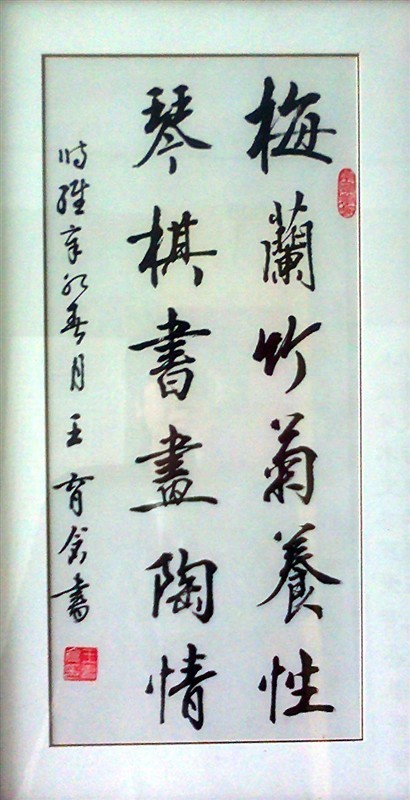 梅蘭竹菊養性
琴棋書畫陶情
時維辛卯春月王育書